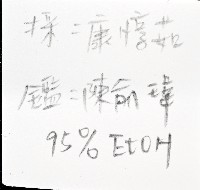 採：康惇茹
鑑：陳俞瑋
95% EtOH